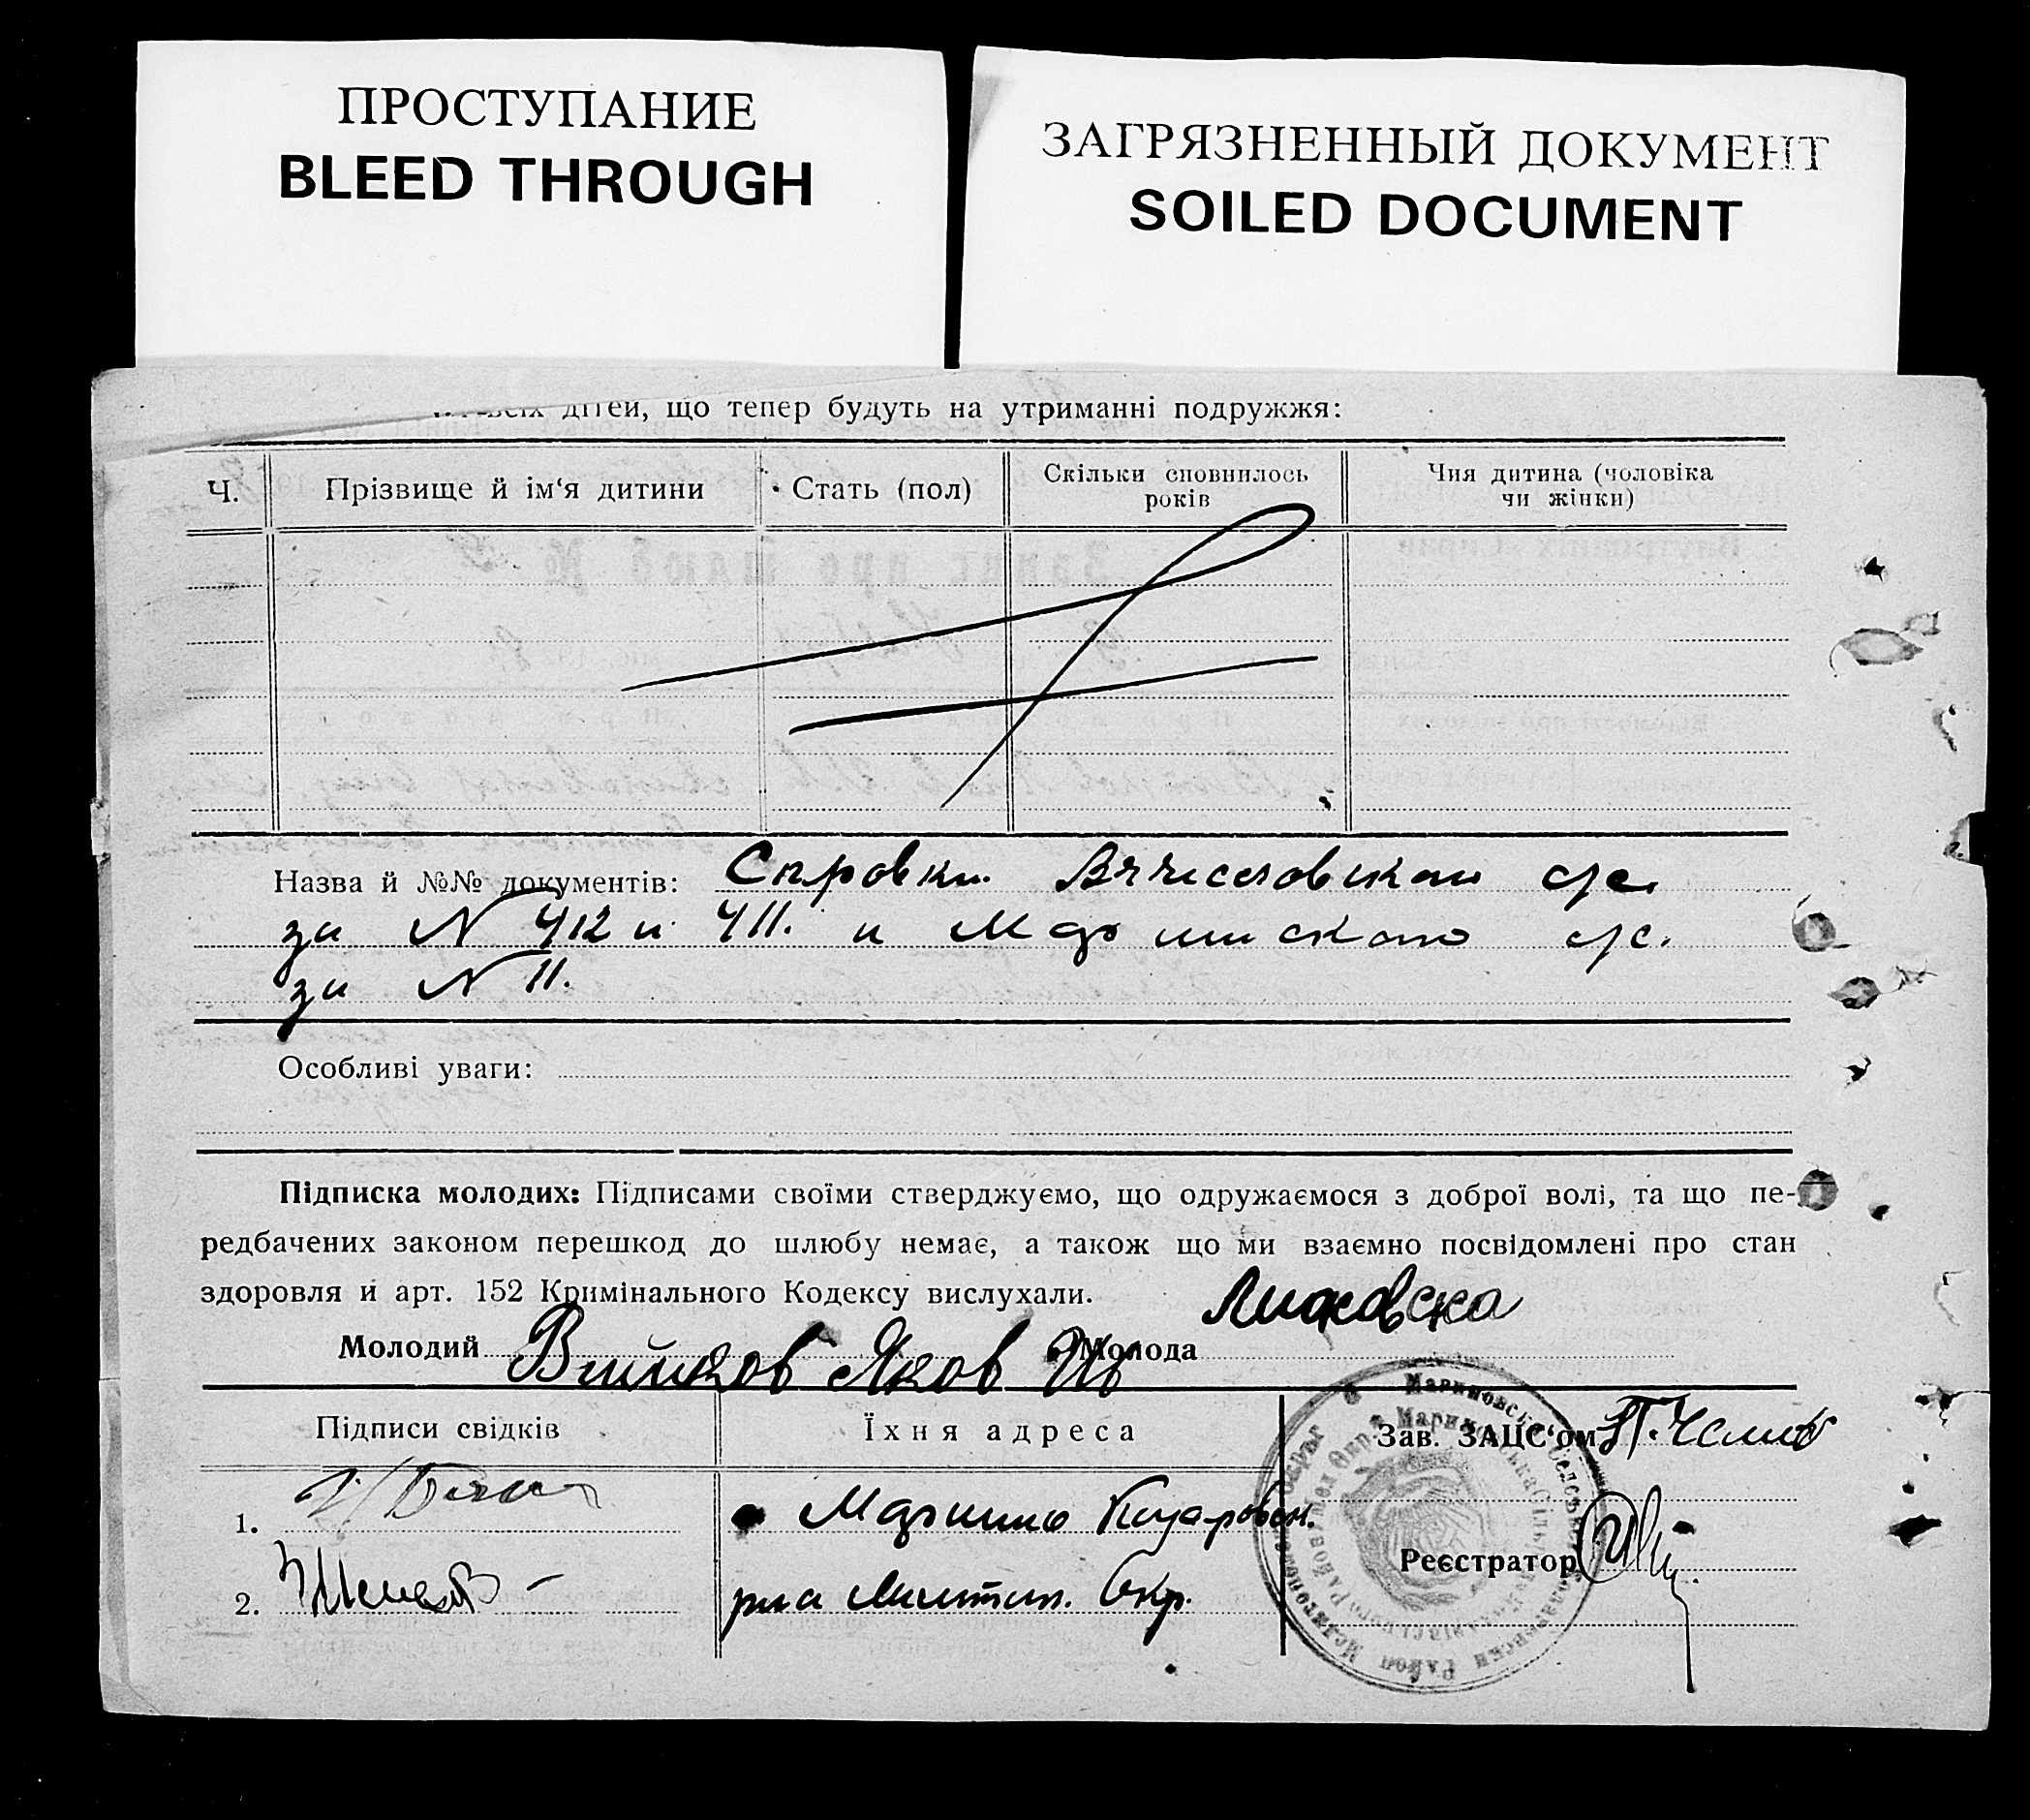 ПРОСТУПАНИЕ
BLEED THROUGH
ЗАГРЯЗНЕННЫЙ ДОКУМЕНТ
SOILED DOCUMENT
дітей, що тепер будуть на утриманні подружжя:
Ч.
Прізвище й ім‘я дитини
Стать (пол)
Скільки сповнилось
років
Чия дитина (чоловіка
чи жінки)
Назва й №№ документів: Справки с/с.
за N 412 и 411. и с/с.
за N 11.
Особливі уваги:
Підписка молодих: Підписами своїми стверджуємо, що одружаємося з доброї волі, та що пе-
редбачених законом перешкод до шлюбу немає, а також що ми взаємно посвідомлені про стан
здоровля й арт. 152 Кримінального Кодексу вислухали.
Молодий Яков Молода
Підписи свідків
Їхня адреса
Зав. ЗАЦС‘ом
1.
Реєстратор
2.
Окр.